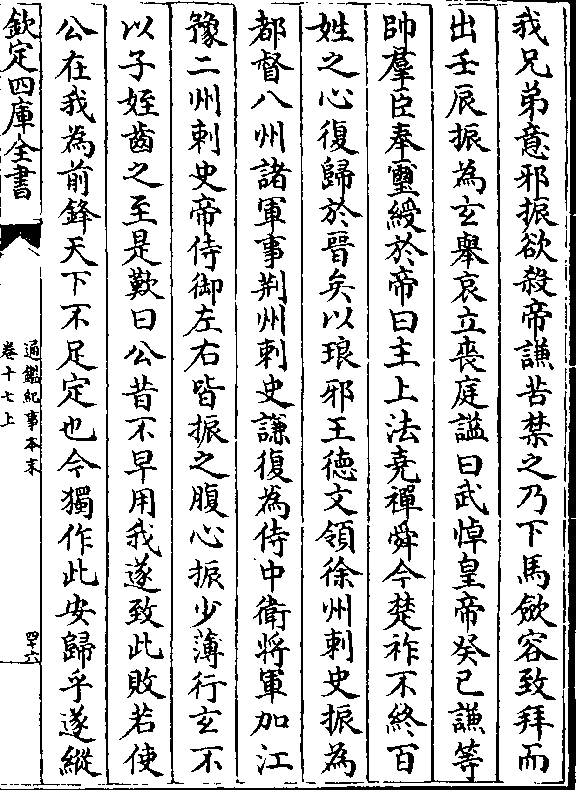 我兄弟意邪振欲殺帝謙苦禁之乃下馬斂容致拜而
出壬辰振為玄舉哀立喪庭諡曰武悼皇帝癸巳謙等
帥羣臣奉璽綬於帝曰主上法堯禪舜今楚祚不終百
姓之心復歸於晉矣以琅邪王徳文領徐州刺史振為
都督八州諸軍事荆州刺史謙復為侍中衛將軍加江
豫二州刺史帝侍御左右皆振之腹心振少薄行玄不
以子姪齒之至是歎曰公昔不早用我遂致此敗若使
公在我為前鋒天下不足定也今獨作此安歸乎遂縱
欽定四庫全書
通鑑紀事本末
卷十七上
四十六